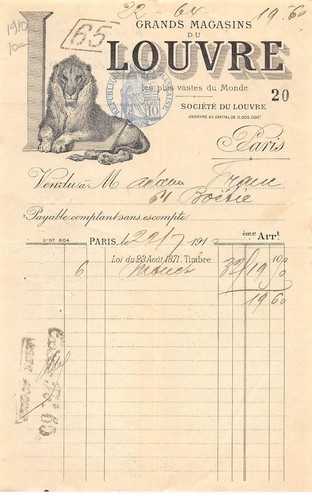 22 64 19 60
1910
65
GRANDS MAGASINS
DU
LOUVRE
les plus vastes du Monde
SOCIÉTÉ DU LOUVRE
20
ANONYME AU CAPITAL DE 11.000.000f
Paris
Vendu à M
Franc
64 Boëtie
Payable comptant sans escompte
ème Arrt
Lt No 604
PARIS, le 22/7 191
Loi du 23 Août 1871. Timbre 10
6 32/19
19 60